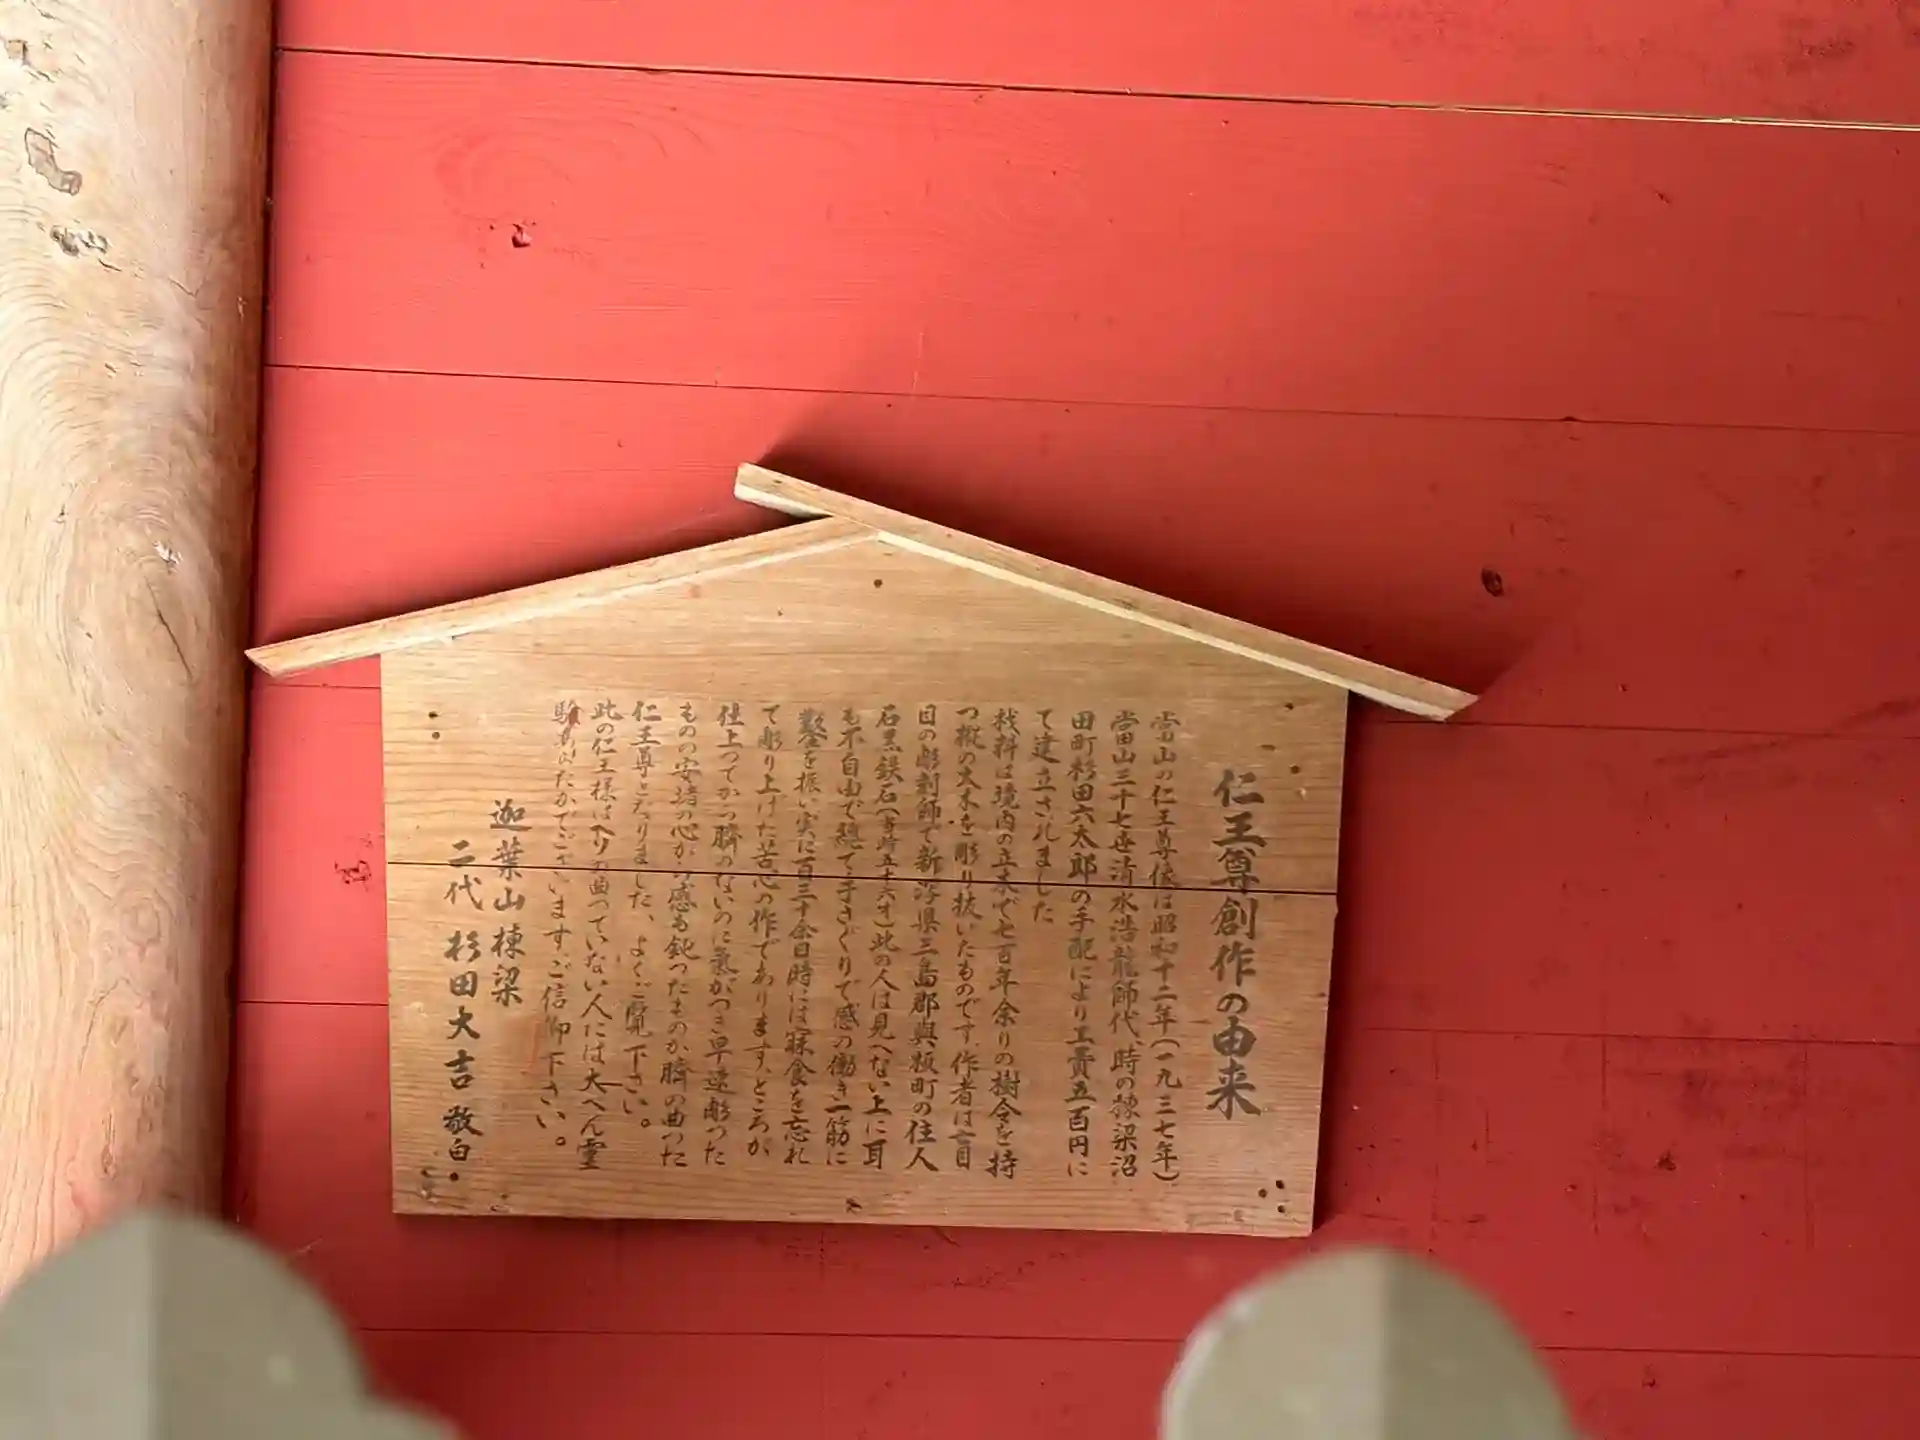 仁王尊創作の由来
当山の仁王尊像は昭和十二年(一九三七年)
當山三十七世清水浩龍師代、時の棟梁沼
田町杉田六太郎の手配により工費五百円に
て建立されました
材料は境内の立木で七百年余りの樹令を持
つ樅の大木を彫り抜いたものです、作者は盲目
目の彫刻師で新潟県三島郡與板町の住人
石黒鉄石(専時五十六才)此の人は見へない上に耳
も不自由で総て手さぐりで感の働き一筋に
鑿を振い実に百三十余日時には寐食を忘れ
て彫り上げた苦心の作であります、ところが
仕上ってから臍のないのに氣がつき早速彫った
ものの安堵の心から感も鈍ったものか臍の曲った
仁王尊となりました、よくご覧下さい。
此の仁王様はヘソの曲っていない人には大へん霊
験あらたかでございます、ご信仰下さい。
迦葉山棟梁
二代 杉田大吉 敬白